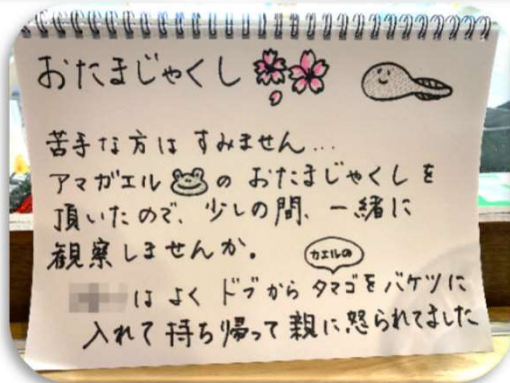 おたまじゃくし
苦手な方は すみません...
アマガエル の おたまじゃくしを
頂いたので、少しの間、一緒に
観察しませんか。
カエルの
は よく ドブから タマゴをバケツに
入れて 持ち帰って 親に怒られてました